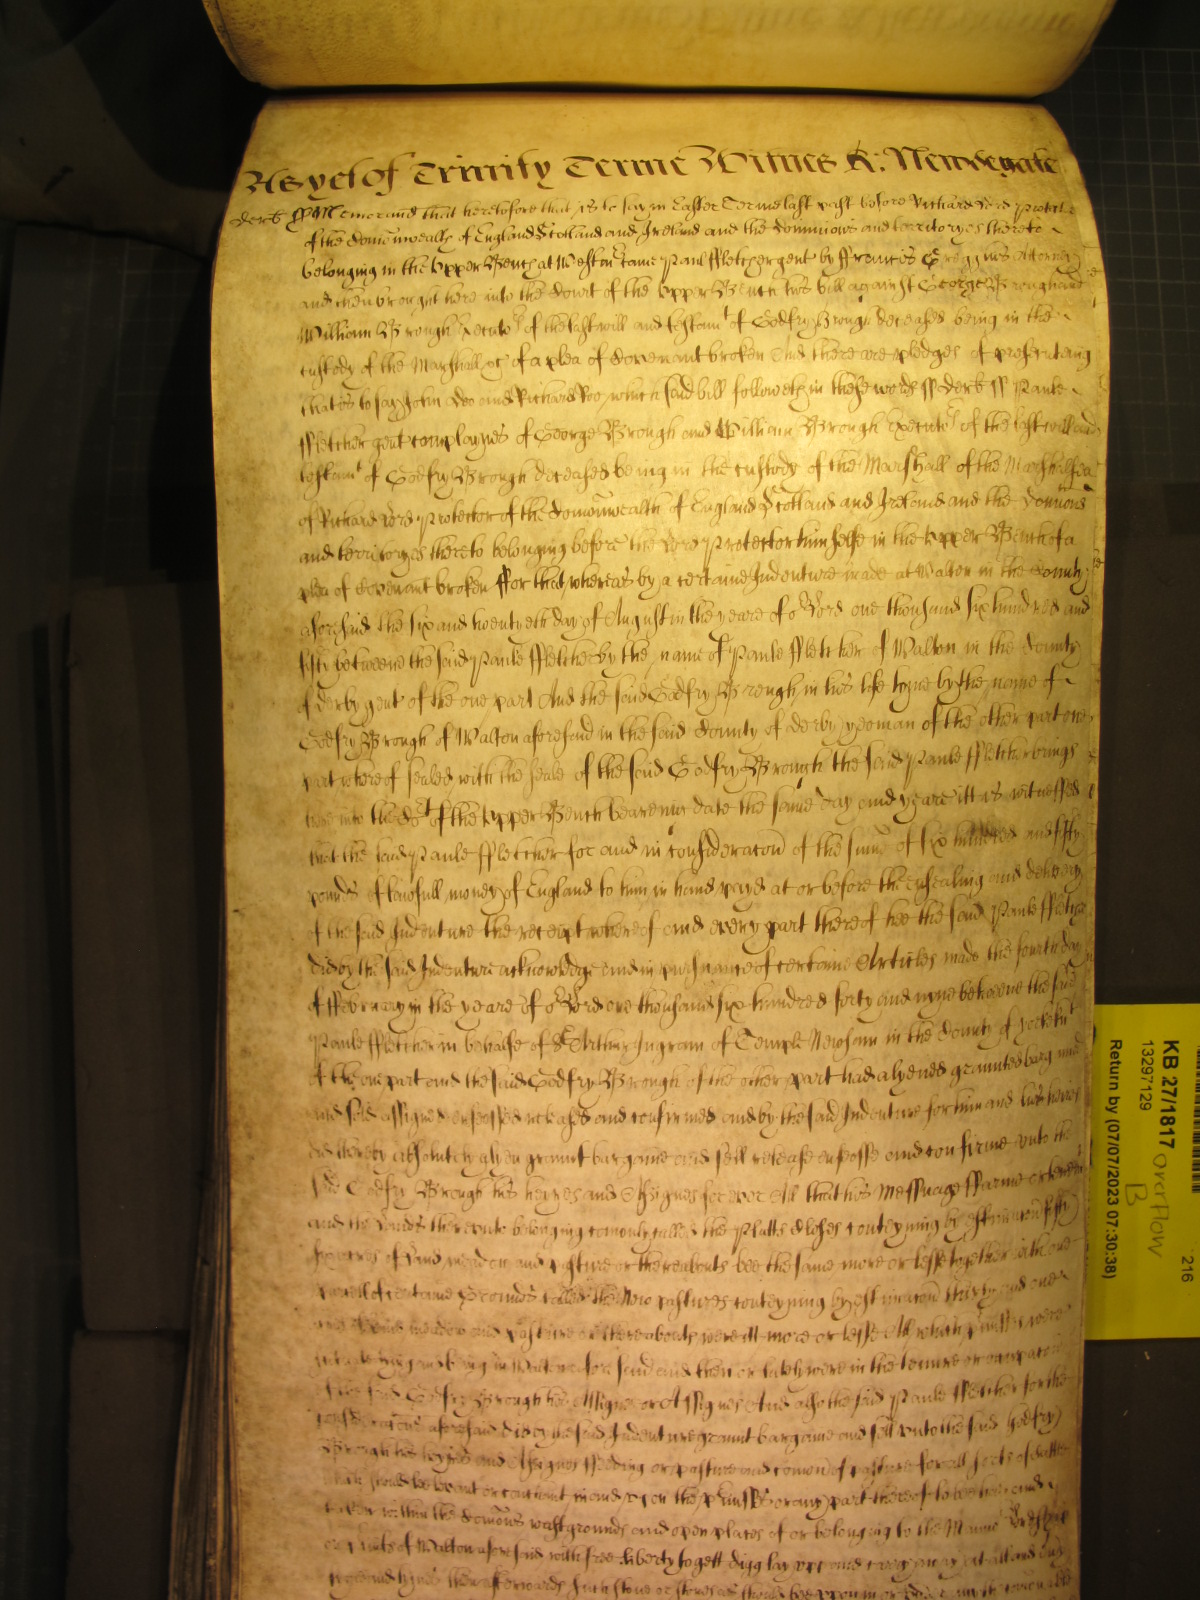 As yet of Trinity Terme Witnes R: Newdegate
Derb ss Memorand that heretofore that is to say in Easter Terme last past before Richard Lord Protector
of the Comonwealth of England Scotland and Ireland and the Dominions and territoryes thereto
belonging in the Upper Bench at Westm came Paul ffletcher gent by ffrancis Gregg his Attorney
and then brought here into the Court of the Upper Bench his bill against George Brough and
William Brough Executors of the last will and testamt of Godfry Brough deceased being in the
custody of the Marshall &c of a plea of Covenant broken And there are pledges of prosecuting
that is to say John Doo and Richard Roo, which said bill followeth in these words ss Derb ss Paule
ffletcher gent complaynes of George Brough and William Brough Executors of the last will and
testamt of Godfry Brough deceased being in the custody of the Marshall of the Marshallsea
of Richard Lord Protector of the Comonwealth of England Scotland and Ireland and the Dominions
and territoryes thereto belonging before the Lord Protector himselfe in the Upper Bench of a
plea of Covenant broken ffor that, whereas by a certaine Indenture made at Walton in the County
aforesaid the six and twentyeth day of August in the yeare of or Lord one thousand six hundred and
fifty betweene the said Paule ffletcher by the name of Paule ffletcher of Walton in the County
of Derby gent of the one part And the said Godfry Brough, in his life tyme by the name of
Godfry Brough of Walton aforesaid in the said County of Derby yeoman of the other part one
part whereof sealed with the seale of the said Godfry Brough the said Paule ffletcher brings
here into the Ct of the Upper Bench beareing date the same day and yeare itt is witnessed
that the said Paule ffletcher for and in consideracon of the sume of six hundred and fifty
pounds of lawfull money of England to him in hand payd at or before the ensealing and delivery
of the said Indenture the receipt whereof and every part thereof hee the said Paule ffletcher
did by the said Indenture acknowledge and in pursuance of certaine Articles made the fourth day
of ffebruary in the yeare of or Lord one thousand six hundred forty and nyne betweene the said
Paule ffletcher in behalfe of Sr Arthur Ingram of Temple Newsam in the County of Yorke knt
of the one part and the said Godfry Brough of the other part had alyened graunted bargained
and sold assigned enfeoffed released and confirmed and by the said Indenture for him and his heires
did thereby absolutely alyen graunt bargaine and sell release enfeoffe and confirme unto the
said Godfry Brough his heyres and Assignes for ever All that his Messuage ffarme or tenement
and the lands thereunto belonging comonly called the Platts Closes conteyning by estimacon fifty
acres of land meadow and pasture or thereabouts bee the same more or lesse together with one
parcell of certaine Grounds called the New pastures conteyning by estimacon thirty and one
acres land meadow and pasture or thereabouts were itt more or lesse All which prmisses were
in Walton aforesaid and then or lately were in the tenure or occupacon
of the said Godfry Brough his Assigne or Assignes And also the said Paule ffletcher for the
consideracons aforesaid did by the said Indenture graunt bargaine and sell unto the said Godfry
Brough his heyres and Assignes ffeeding or pasture and comon of pasture for all sorts of cattle
levant or couchant in and upon the prmisses or any part thereof to bee had and
taken within the Comons wast grounds and open places of or belonging to the Mannor Lordshipp
of Walton aforesaid with free liberty to gett digg lay upp and carry away att all and every
tyme and tymes then afterwards such stone or stones as should bee uppon in or
KB 27/1817 overflow
B
13297129
Return by (07/07/2023 07:30:38)
216